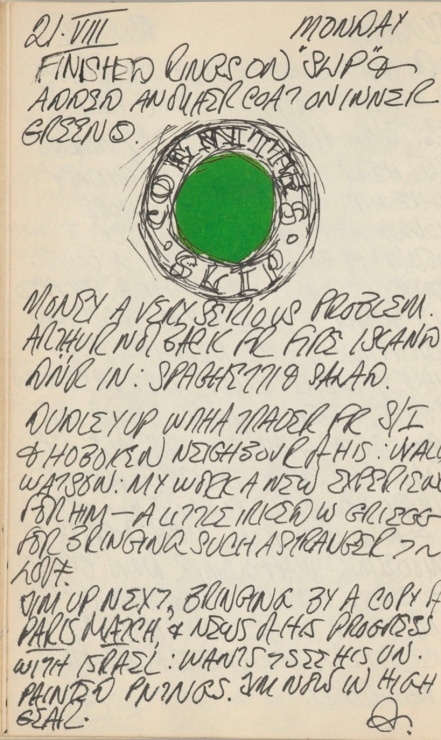 21·VIII MONDAY
FINISHED RINGS ON "SLIP" &
ADDED ANOTHER COAT ON INNER
GREEN
COENTIES · SLIP ·
MONEY A VERY SERIOUS PROBLEM.
ARTHUR NOT BACK FR FIRE ISLAND
DNR IN: SPAGHETTI & SALAD.
DUDLEY UP WITH A TRADER FR S/I
& HOBOKEN NEIGHBOUR OF HIS: WALL
WATSON: MY WORK A NEW EXPERIEN
FOR HIM — A LITTLE IRKED W GRIEGG
FOR BRINGING SUCH A STRANGER
LOFT.
JIM UP NEXT, BRINGING BY A COPY
PARIS MATCH & NEWS OF HIS PROGRESS
WITH ISRAEL: WANTS SEE HIS UN.
PAINTED PNTNGS. I'M NOW IN HIGH
GEAR.